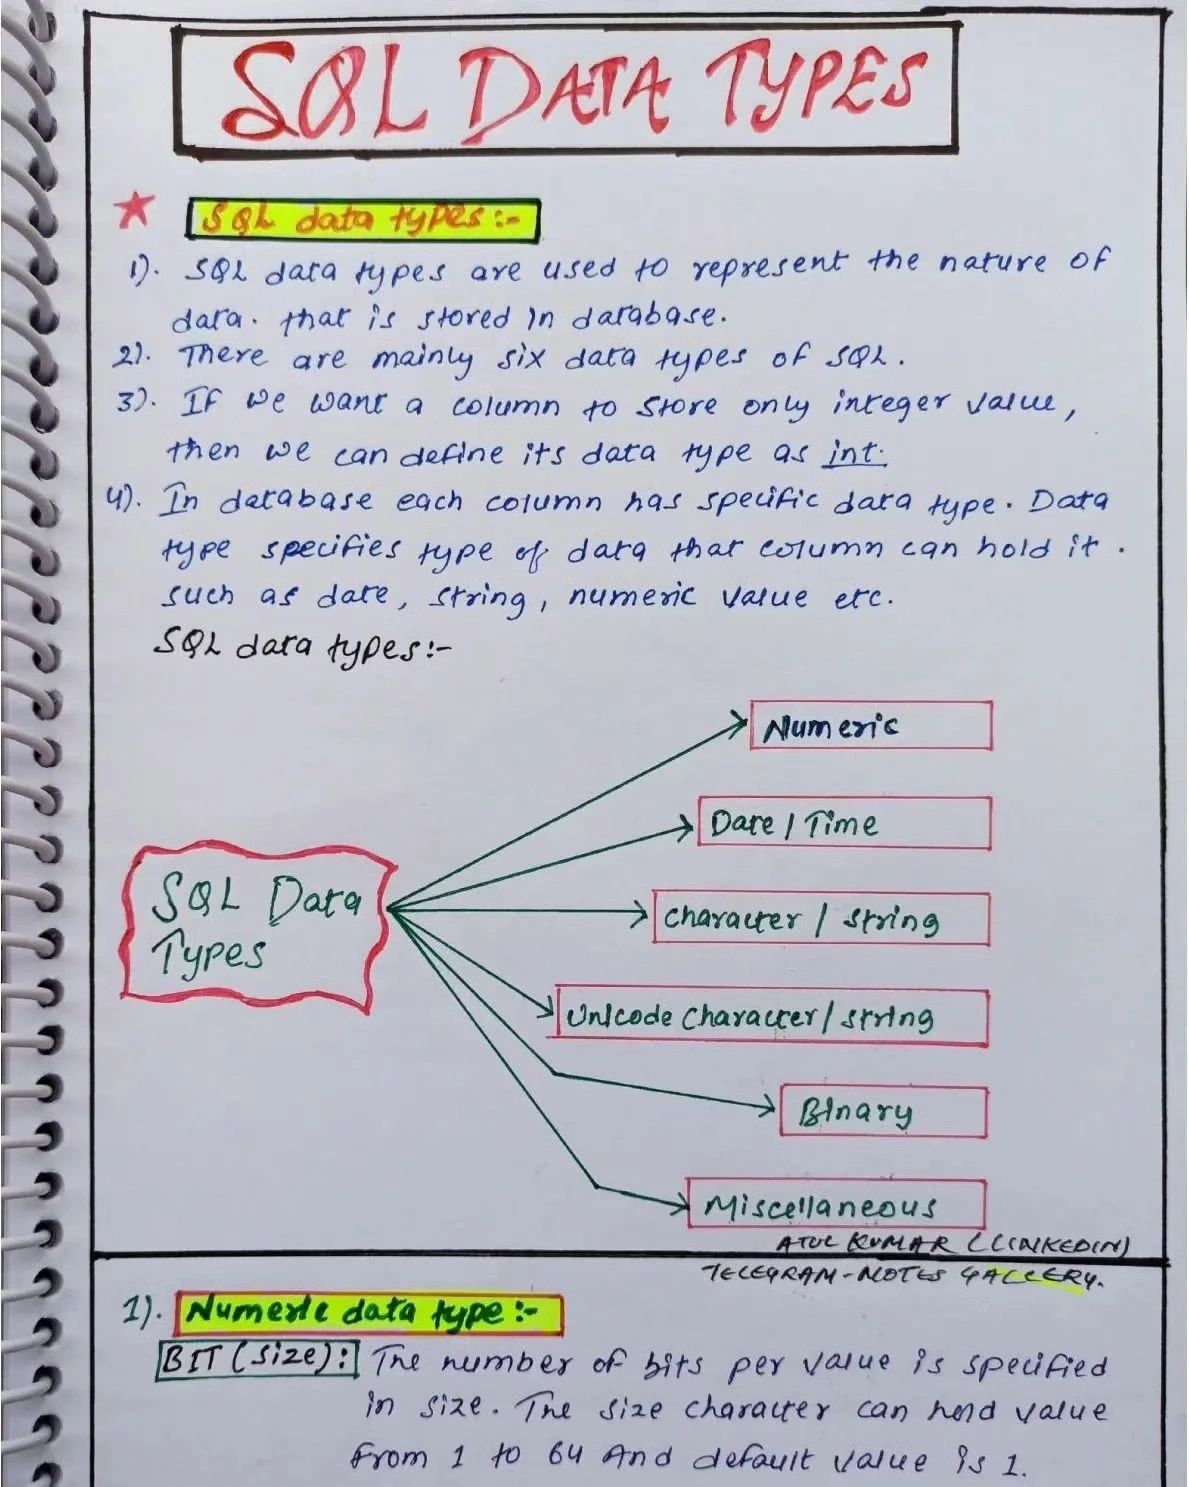 SQL DATA TYPES
SQL data types:-
1). SQL data types are used to represent the nature of
data. that is stored in database.
2). There are mainly six data types of SQL.
3). If we want a column to store only integer value,
then we can define its data type as int.
4). In database each column has specific data type. Data
type specifies type of data that column can hold it.
such as date, string, numeric value etc.
SQL data types:-
Numeric
Date / Time
SQL Data
Types
character / string
Unicode character / string
Binary
Miscellaneous
ATUL KUMAR (LINKEDIN)
TELEGRAM - NOTES GALLERY.
1). Numeric data type :-
BIT (size): The number of bits per value is specified
in size. The size character can hold value
from 1 to 64 And default value is 1.